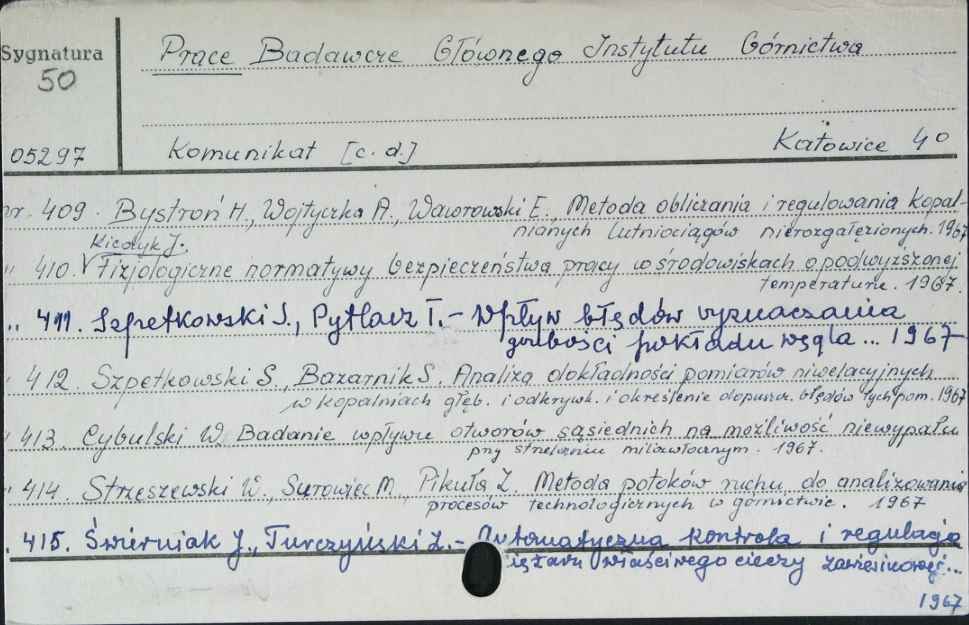 Sygnatura
50
Prace Badawcze Głównego Instytutu Górnictwa
05297
Komunikat [c.d.]
Katowice 40
nr. 409. Bystroń H., Wojtyczka A., Waworowski E., Metoda obliczania i regulowania kopal-
nianych lutniociągów nierozgałęzionych. 1967
Kicdyk J.
" 410. √ Fizjologiczne normatywy bezpieczeństwa pracy w środowiskach o podwyższonej
temperaturze. 1967.
" 411. Szpetkowski S., Pytlarz T. - Wpływ błędów wyznaczania
grubości pokładu węgla ... 1967
" 412. Szpetkowski S., Bazarnik S. Analiza dokładności pomiarów niwelacyjnych
w kopalniach głęb. i odkrywk. i określenie dopuszcz. błędów tych pom. 1967
" 413. Cybulski W. Badanie wpływu otworów sąsiednich na możliwość niewypału
przy strzelaniu milizwłocznym. 1967.
" 414. Strzeszewski W., Surowiec M., Pikuła Z. Metoda potoków ruchu do analizowania
procesów technologicznych w górnictwie. 1967
. 415. Świerniak J., Turczyński L. - Automatyczna kontrola i regulacja
ciężaru właściwego cieczy zawiesinowej...
1967